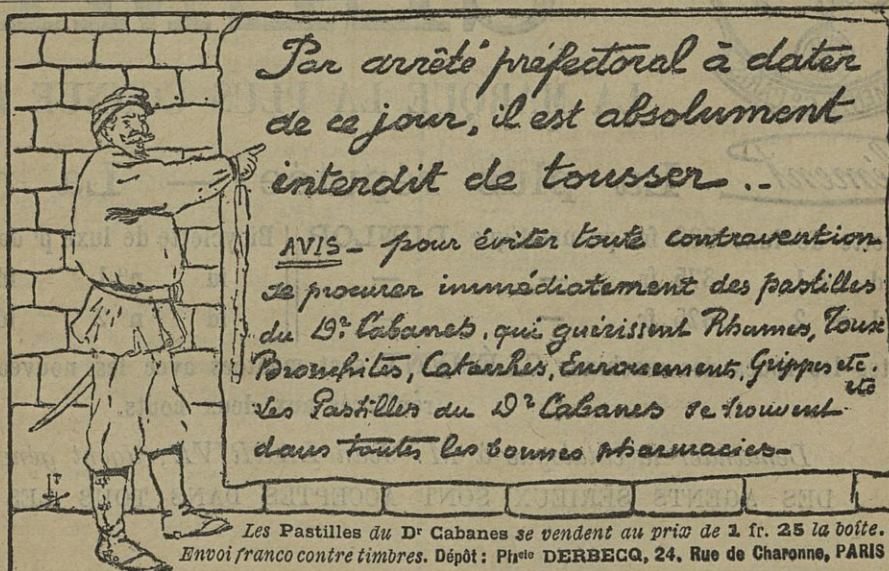 Par arrêté préfectoral à dater
de ce jour, il est absolument
interdit de tousser...
AVIS - pour éviter toute contravention
se procurer immédiatement des pastilles
du Dr Cabanes, qui guérissent Rhumes, Toux
Bronchites, Catarrhes, Enrouements, Grippes etc. etc
Les Pastilles du Dr Cabanes se trouvent
dans toutes les bonnes pharmacies-
Les Pastilles du Dr Cabanes se vendent au prix de 1 fr. 25 la boîte.
Envoi franco contre timbres. Dépôt : Phcie DERBECQ, 24, Rue de Charonne, PARIS